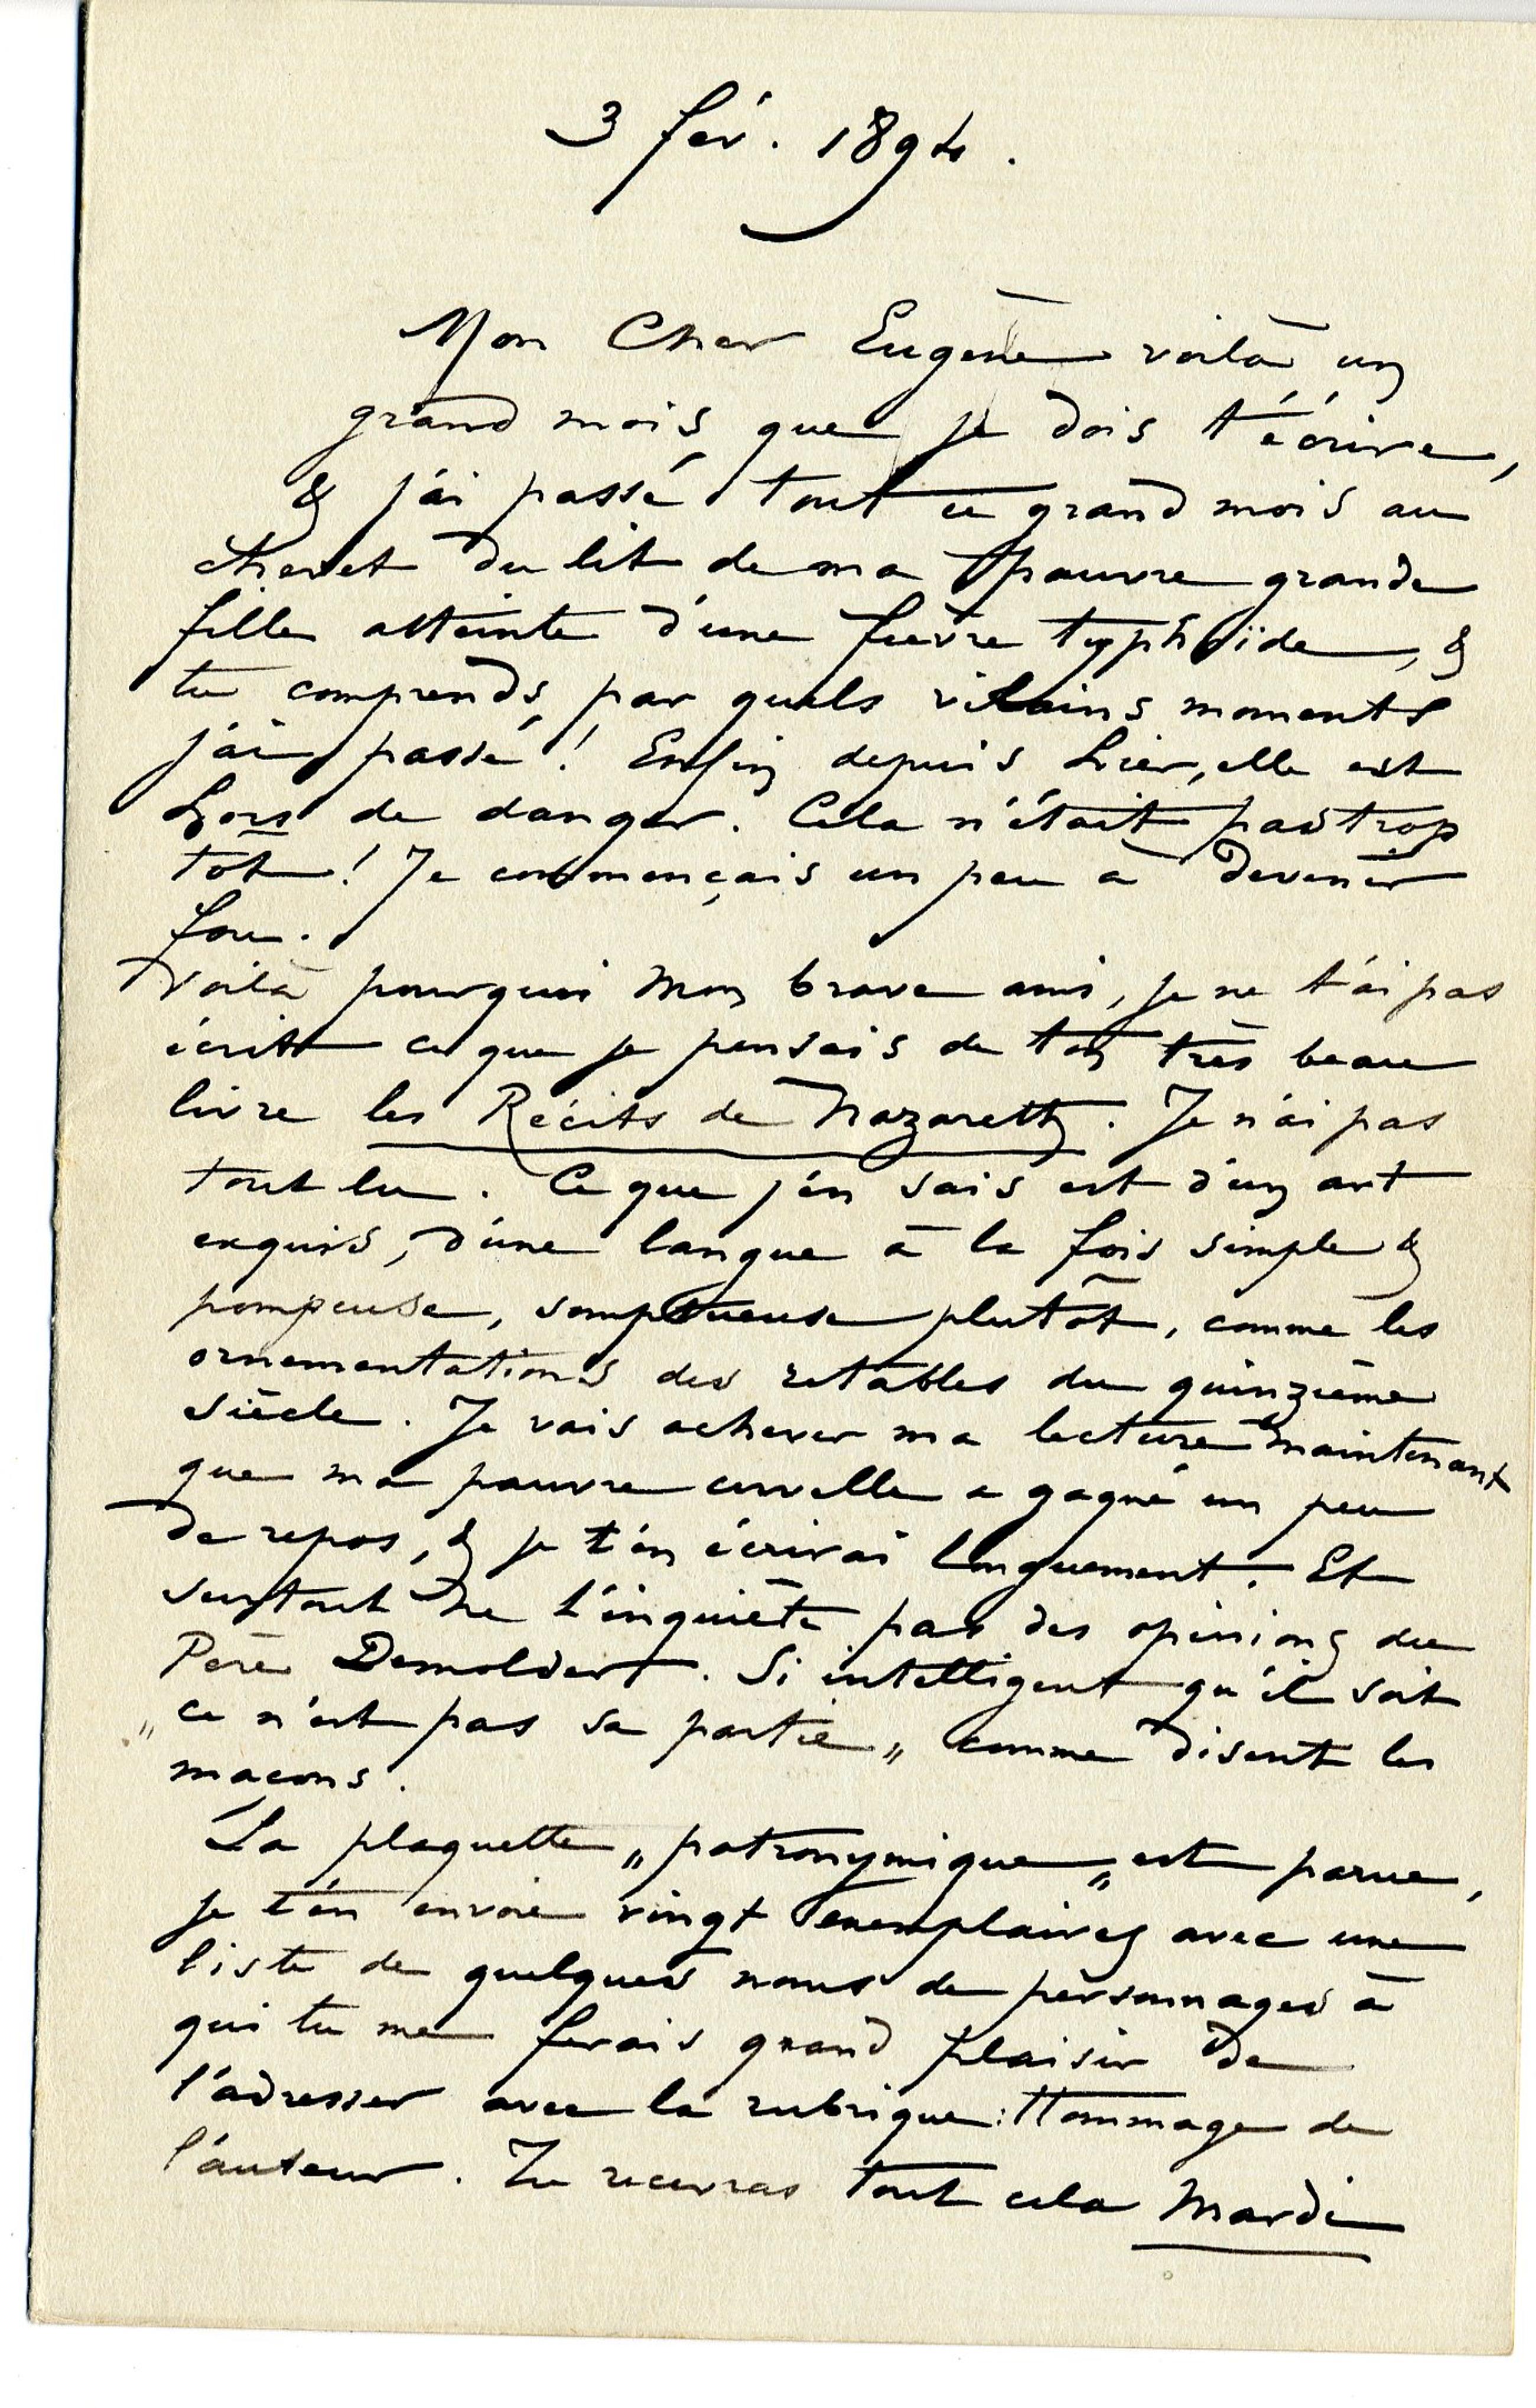 3 fév. 1894.
Mon Cher Eugène voilà un
grand mois que je dois t'écrire,
& j'ai passé tout ce grand mois au
chevet du lit de ma pauvre grande
fille atteinte d'une fièvre typhoïde, &
tu comprends par quels vilains moments
j'ai passé! Enfin depuis hier, elle est
hors de danger. Cela n'était pas trop
tôt! Je commençais un peu à devenir
fou.
Voilà pourquoi mon brave ami, je ne t'ai pas
écrit ce que je pensais de ton très beau
livre les Récits de Nazareth. Je n'ai pas
tout lu. Ce que j'en sais est d'un art
exquis, d'une langue à la fois simple &
pompeuse, somptueuse plutôt, comme les
ornementations des retables du quinzième
siècle. Je vais achever ma lecture maintenant
que ma pauvre cervelle a gagné un peu
de repos, & je t'en écrirai longuement. Et
surtout ne t'inquiète pas des opinions du
Père Demolder. Si intelligent qu'il soit
„ce n'est pas sa partie„ comme disent les
maçons.
La plaquette „patronymique„ est parue,
je t'en envoie vingt exemplaires avec une
liste de quelques noms de personnages à
qui tu me ferais grand plaisir de
l'adresser avec la rubrique: Hommage de
l'auteur. Tu recevras tout cela Mardi